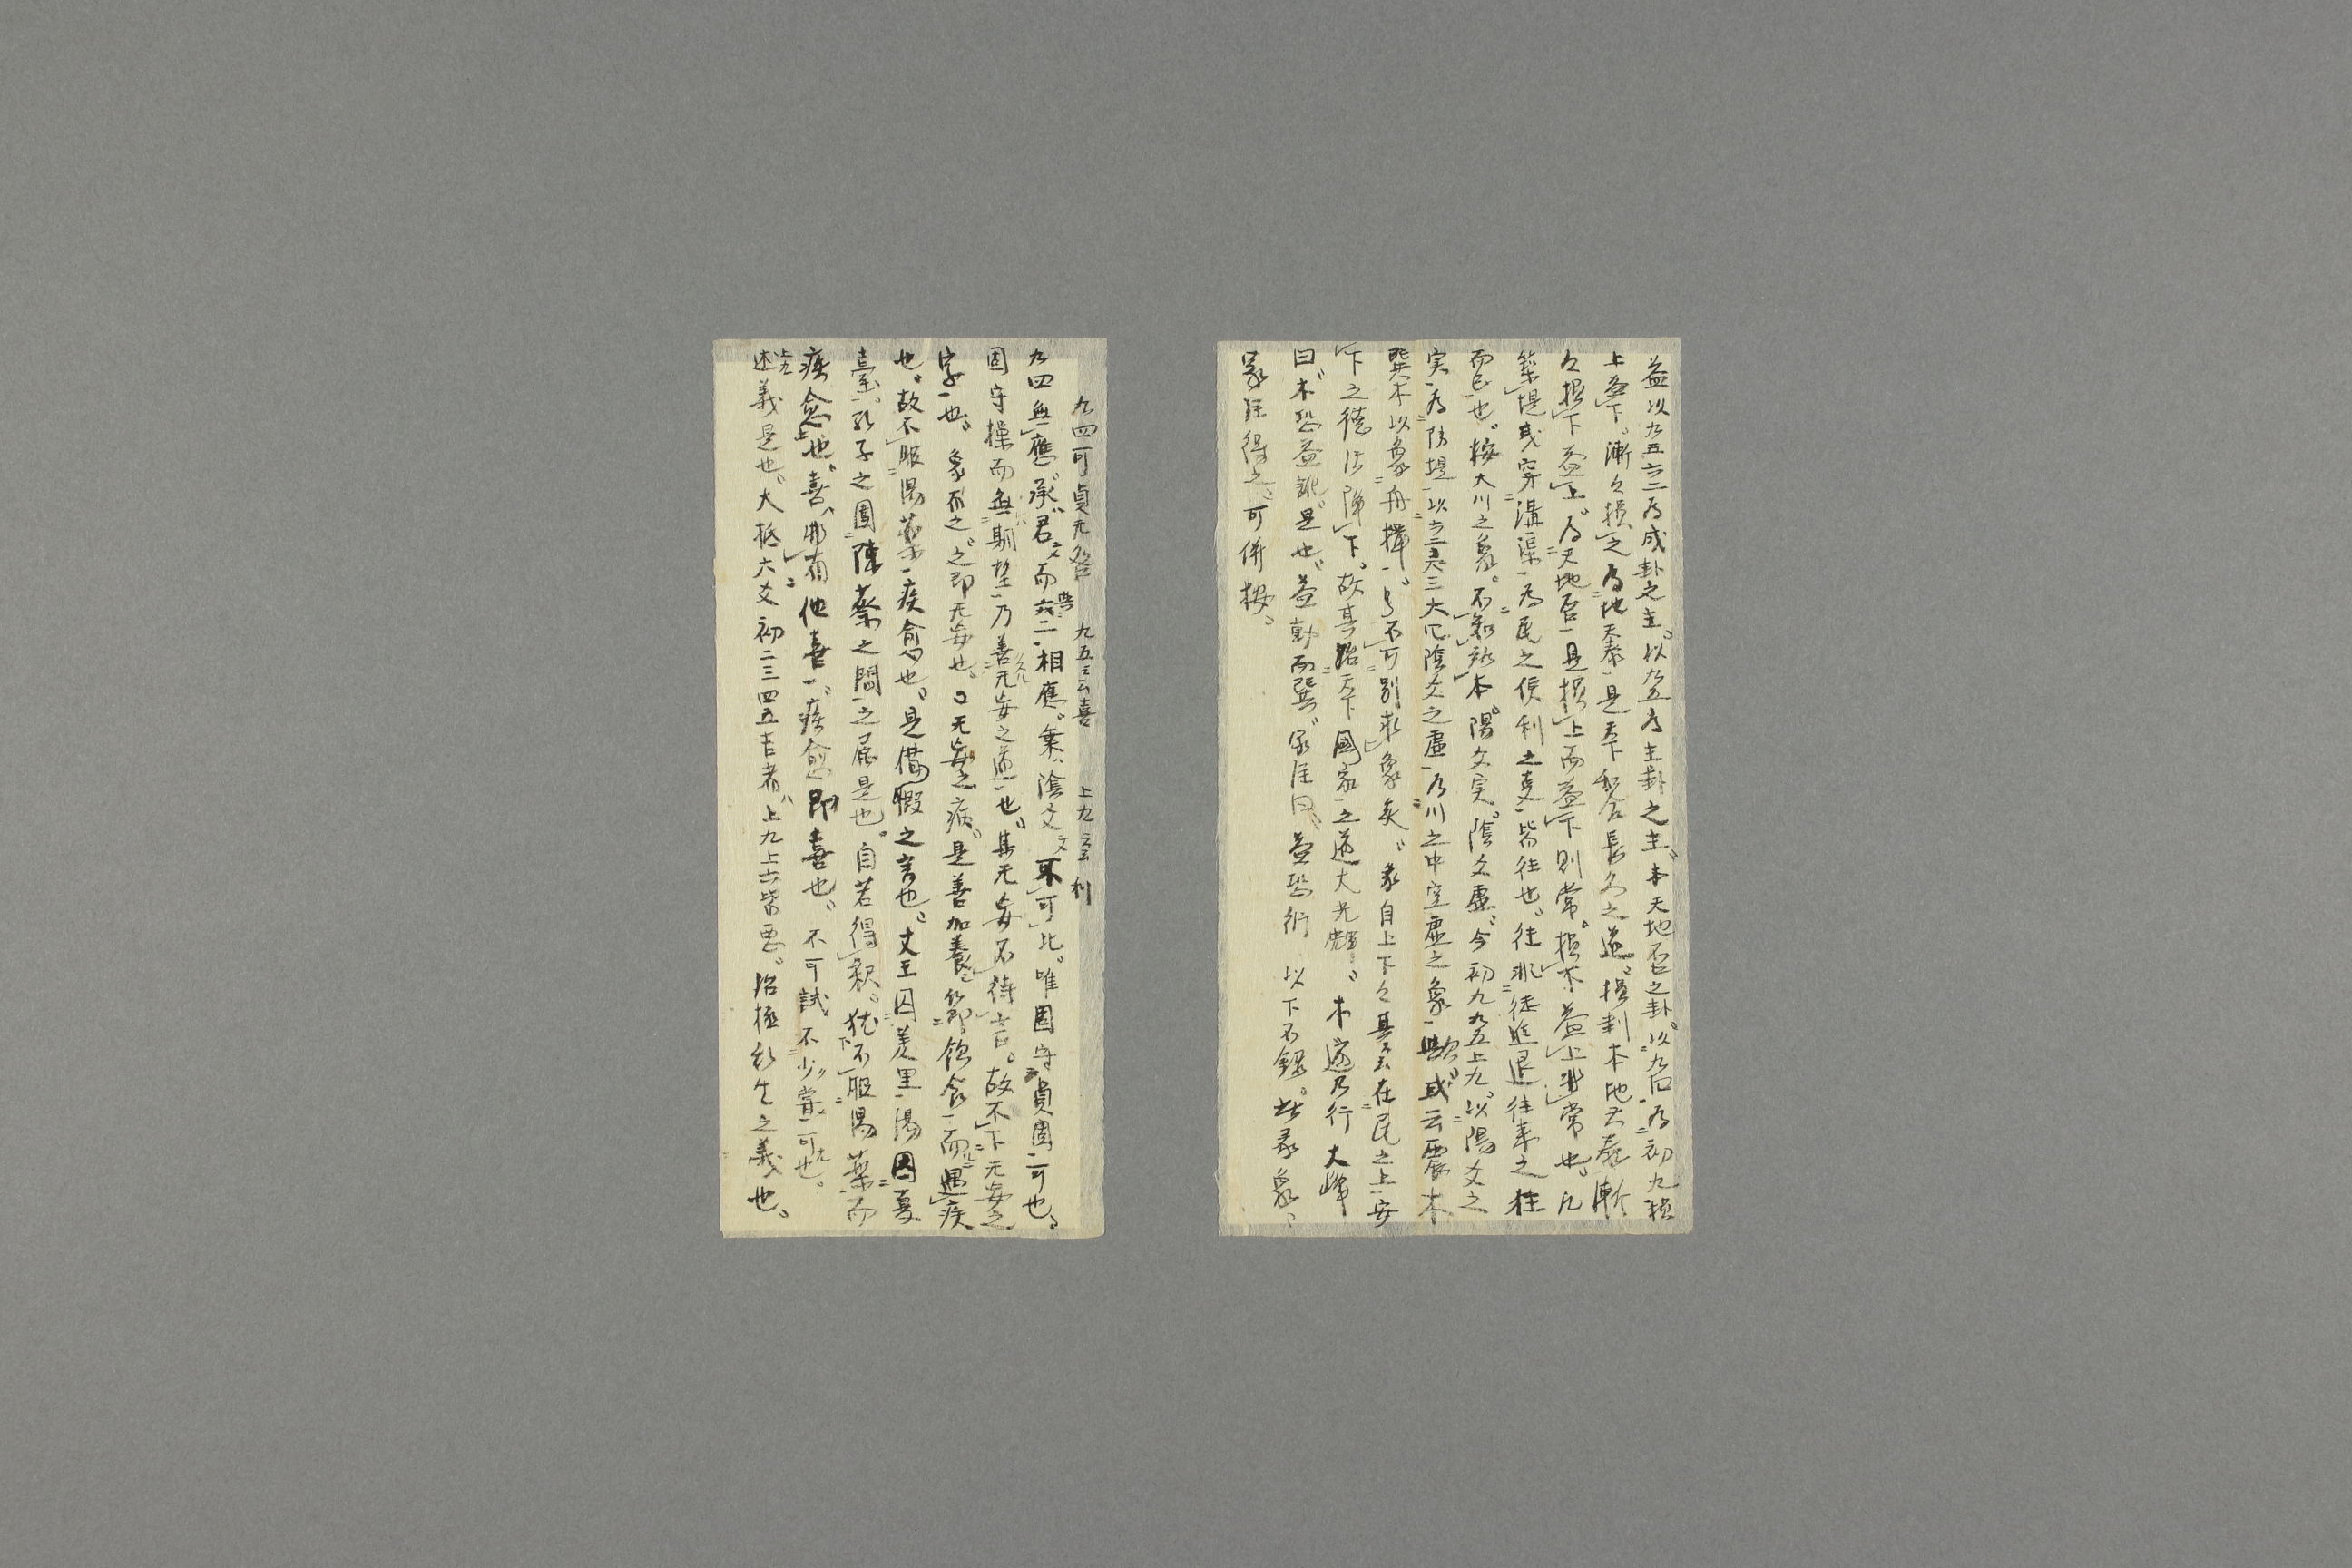 益以九五六二為成卦之主。以九五為主卦之主。本天地否之卦。以九四為初九損
上益下。漸々損之為地天泰是天下和合長久之道。損則本地天泰漸
々損下益上。為天地否是損上而益下則常。損下益上非常也。凡
築堤或穿溝渠為民之便利之支皆往也。往非徒進退往来之往
而已也。按大川之象。不知所本。陽爻実。陰爻虚。今初九九五上九。以陽爻之
実為防堤以六二六三六四陰爻之虚為川之中空虚之象歟。或云震木
巽木以象舟楫。不可別求象矣。彖自上下々其云在民之上安
下之徳法降下。故其路天下国家之道大光輝。木道乃行大峰
曰。木恐益訛。是也。益動而巽。家注曰益恐衍 以下不録。此彖象。
冢註得之。可併按。
九四可貞无咎 九五云喜 上九云利
九四無應。承君而與二相應。乗陰爻不可比。唯固守貞固可也。
固守操而無期望乃善无妄之道也。其无妄不待言。故不下无妄之
字也。象所之。之即无妄也。○无妄之病。是善加養節飲食而遇疾
也。故不服湯薬疾愈也。是借假之言也。文王囚羑里湯囚夏
臺。孔子之圍陳蔡之間之厄是也。自若得釈。犹不服湯薬而
疾愈也。喜。非有他喜。疾愈即喜也。不可試不少嘗可也。
述義是也。大抵六爻初二三四五吉者。上九上六皆悪。治極乱生之義也。